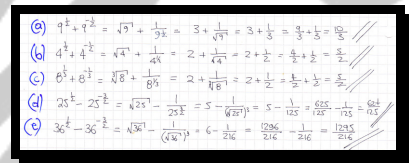 (a) 9^{1/2} + 9^{-1/2} = √9 + 1/9^{1/2} = 3 + 1/√9 = 3 + 1/3 = 9/3 + 1/3 = 10/3
(b) 4^{1/2} + 4^{-1/2} = √4 + 1/4^{1/2} = 2 + 1/√4 = 2 + 1/2 = 4/2 + 1/2 = 5/2
(c) 8^{1/3} + 8^{-1/3} = ∛8 + 1/8^{1/3} = 2 + 1/∛8 = 2 + 1/2 = 4/2 + 1/2 = 5/2
(d) 25^{1/2} - 25^{-3/2} = √25 - 1/25^{3/2} = 5 - 1/(√25)^3 = 5 - 1/125 = 625/125 - 1/125 = 624/125
(e) 36^{1/2} - 36^{-3/2} = √36 - 1/(√36)^3 = 6 - 1/216 = 1296/216 - 1/216 = 1295/216